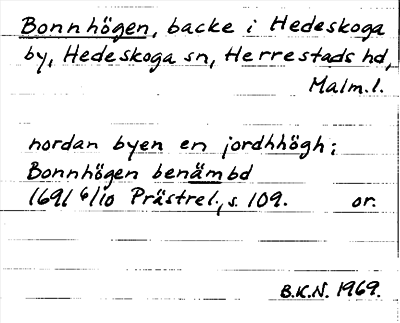 Bonnhögen, backe i Hedeskoga
by, Hedeskoga sn, Herrestads hd,
Malm.l.
nordan byen en jordhhögh;
Bonnhögen benämbd
1691 6/10 Prästrel., s. 109. or.
B.K.N. 1969.